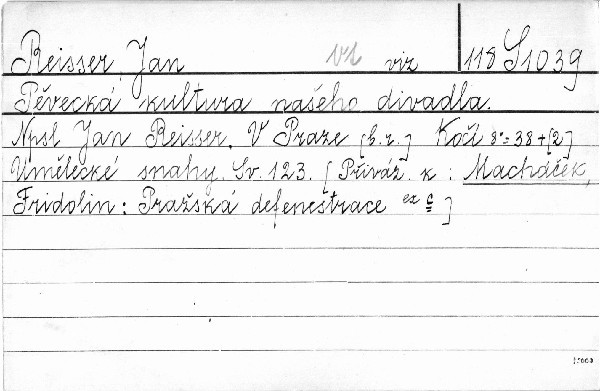 Reisser, Jan viz 118 S 1039
Pěvecká kultura našeho divadla.
Npsl Jan Reisser. V Praze [b.r.] Kočl 8°= 38+[2]
Umělecké snahy. Sv. 123. [Přiváz. k : Macháček,
Fridolin: Pražská defenestrace ex c ]